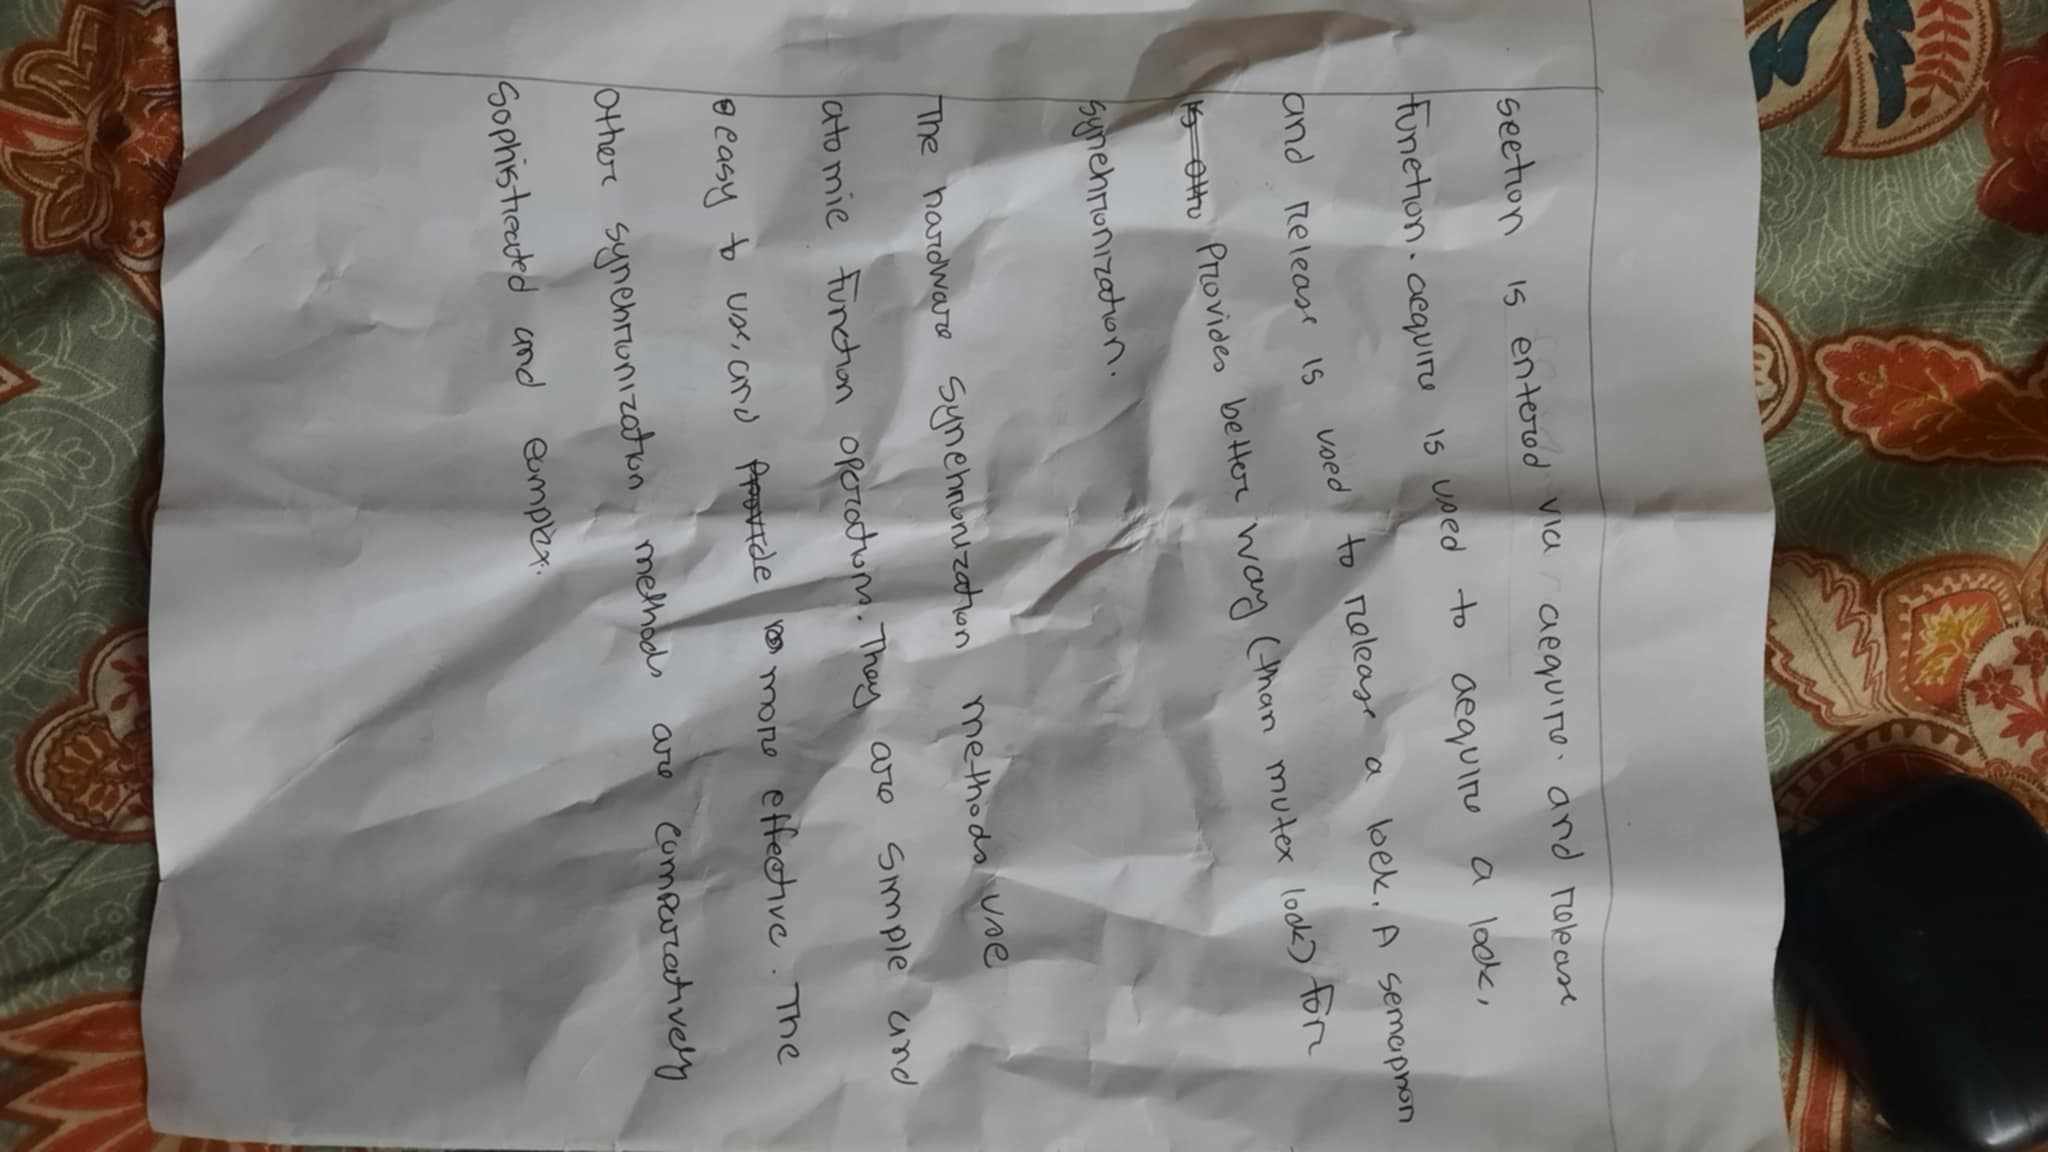 section is entered via acquire. and release
function. acquire is used to acquire a lock,
and release is used to release a lock. A semaphon
is oth provides better way (than mutex lock) for
synchronization.
The hardware synchronization methods use
atomic function operations. They are simple and
easy to use, and provide more effective. The
other synchronization methods are comparatively
sophisticated and complex.